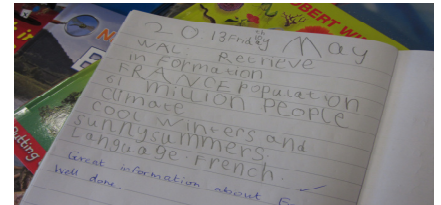 2013 Friday 13th May
WAL: Retrieve
information
FRANCE population
61 million people
climate
cool winters and
sunny summers.
Language. French.
Great information about
Well done.
OBERT WI
utting